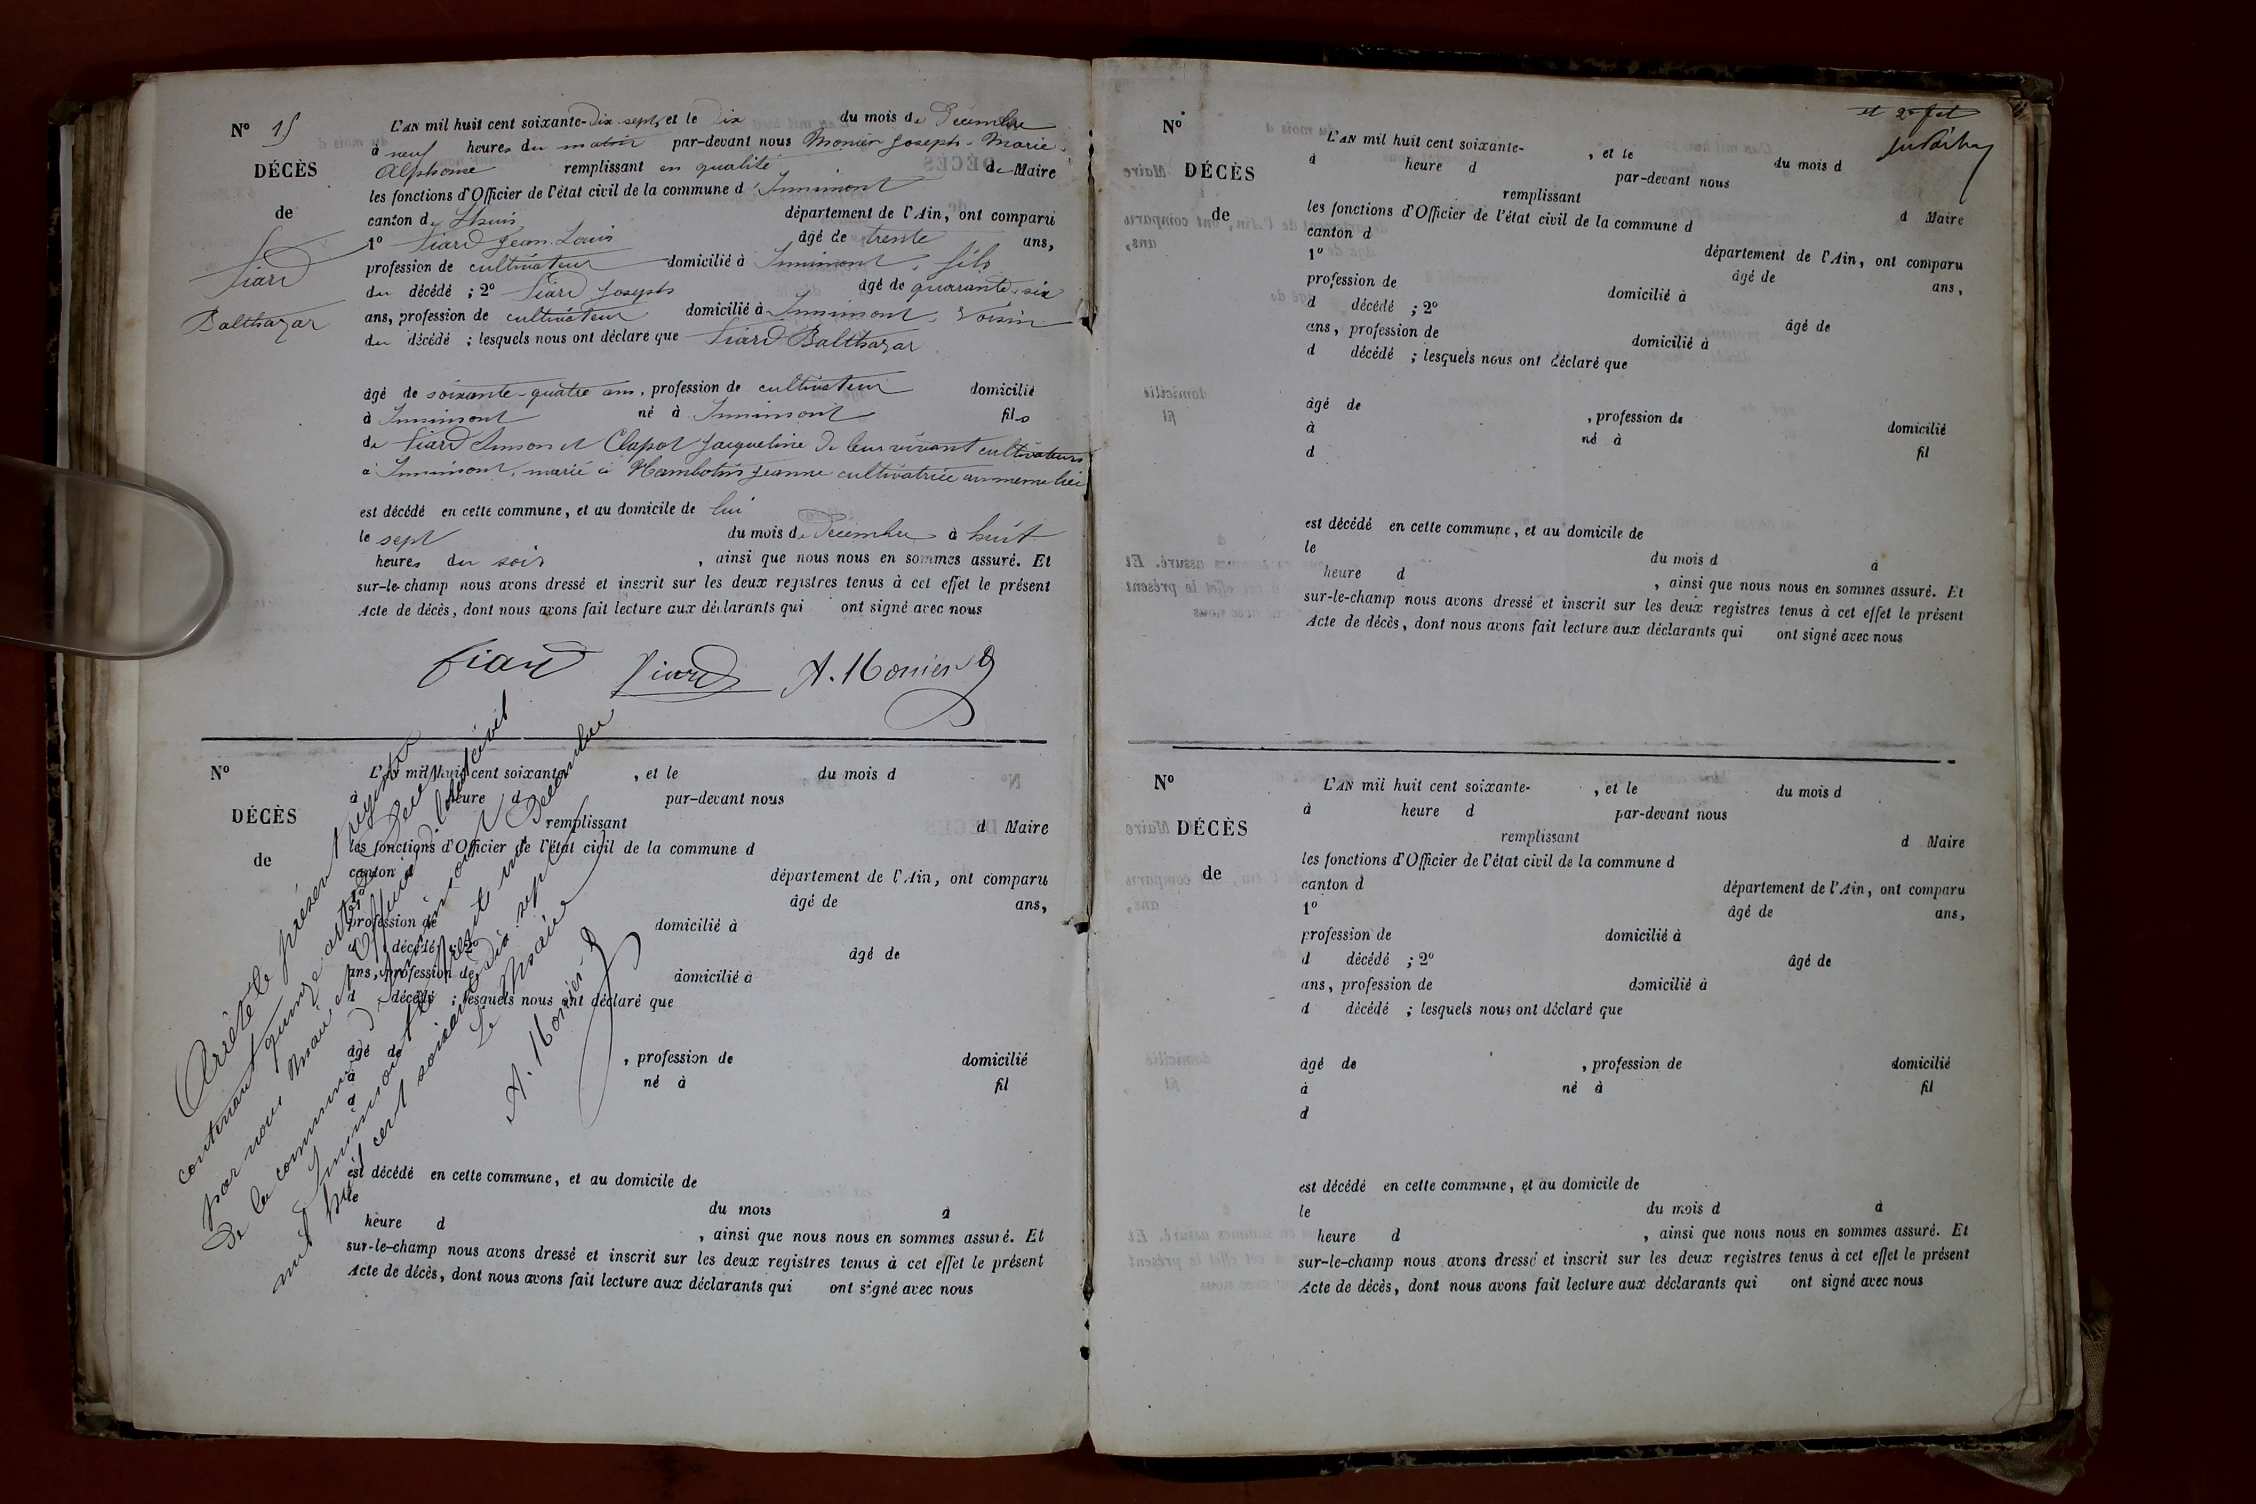 N° 15
DÉCÈS
de
Liard
Balthazar
L'AN mil huit cent soixante-dix-sept, et le dix du mois de Décembre
à neuf heures du matin par-devant nous Monier Joseph-Marie-
Alphonse remplissant en qualité de Maire
les fonctions d'Officier de l'état civil de la commune d'Innimont
canton de Lhuis département de l'Ain, ont comparu
1° Liard Jean-Louis âgé de trente ans,
profession de cultivateur domicilié à Innimont, fils
du décédé ; 2° Liard Joseph âgé de quarante-six
ans, profession de cultivateur domicilié à Innimont, voisin
du décédé ; lesquels nous ont déclaré que Liard Balthazar
âgé de soixante-quatre ans, profession de cultivateur domicilié
à Innimont né à Innimont fils
de Liard Simon et Clapot Jacqueline de leur vivant cultivateurs
à Innimont, marié à Hambotin Jeanne cultivatrice au même lieu
est décédé en cette commune, et au domicile de lui
le sept du mois de Décembre à huit
heures du soir , ainsi que nous nous en sommes assuré. Et
sur-le-champ nous avons dressé et inscrit sur les deux registres tenus à cet effet le présent
Acte de décès, dont nous avons fait lecture aux déclarants qui ont signé avec nous
Liard Liard A. Monier
N°
DÉCÈS
de
L'AN mil huit cent soixante- , et le du mois d
à heure d par-devant nous
remplissant d Maire
les fonctions d'Officier de l'état civil de la commune d
canton d département de l'Ain, ont comparu
1° âgé de ans,
profession de domicilié à
d décédé ; 2° âgé de
ans, profession de domicilié à
d décédé ; lesquels nous ont déclaré que
âgé de , profession de domicilié
à né à fil
d
est décédé en cette commune, et au domicile de
le du mois à
heure d , ainsi que nous nous en sommes assuré. Et
sur-le-champ nous avons dressé et inscrit sur les deux registres tenus à cet effet le présent
Acte de décès, dont nous avons fait lecture aux déclarants qui ont signé avec nous
Arrêté le présent registre
contenant quinze actes
par nous Maire et Officier de l'état civil
de la commune d'Innimont
Innimont le trente un Décembre
mil huit cent soixante dix-sept
Le Maire
A. Monier
et
N°
DÉCÈS
de
L'AN mil huit cent soixante- , et le du mois d
à heure d par-devant nous
remplissant d Maire
les fonctions d'Officier de l'état civil de la commune d
canton d département de l'Ain, ont comparu
1° âgé de ans,
profession de domicilié à
d décédé ; 2° âgé de
ans, profession de domicilié à
d décédé ; lesquels nous ont déclaré que
âgé de , profession de domicilié
à né à fil
d
est décédé en cette commune, et au domicile de
le du mois d à
heure d , ainsi que nous nous en sommes assuré. Et
sur-le-champ nous avons dressé et inscrit sur les deux registres tenus à cet effet le présent
Acte de décès, dont nous avons fait lecture aux déclarants qui ont signé avec nous
N°
DÉCÈS
de
L'AN mil huit cent soixante- , et le du mois d
à heure d par-devant nous
remplissant d Maire
les fonctions d'Officier de l'état civil de la commune d
canton d département de l'Ain, ont comparu
1° âgé de ans,
profession de domicilié à
d décédé ; 2° âgé de
ans, profession de domicilié à
d décédé ; lesquels nous ont déclaré que
âgé de , profession de domicilié
à né à fil
d
est décédé en cette commune, et au domicile de
le du mois d à
heure d , ainsi que nous nous en sommes assuré. Et
sur-le-champ nous avons dressé et inscrit sur les deux registres tenus à cet effet le présent
Acte de décès, dont nous avons fait lecture aux déclarants qui ont signé avec nous